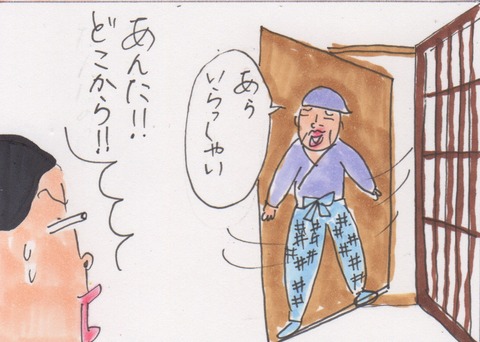 あぅ
いらっしゃい
あんた!!
どこから!!